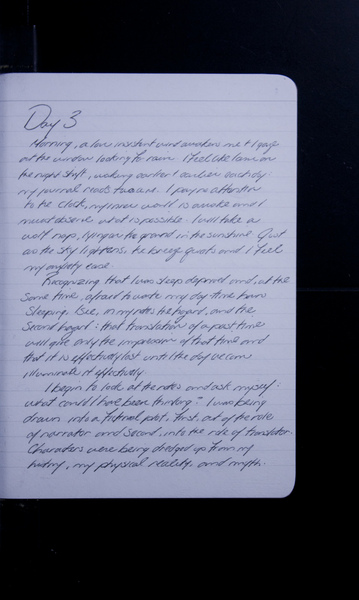 Day 3
Morning, a low insistent wind awakens me & I gaze
out the window looking for rain. I feel like I am on
the night shift, waking earlier & earlier each day:
my journal needs
to the clock, my inner world is awake and I
must observe what is possible. I will take a
wolf nap, lying on the ground in the sunshine. Just
as the sky lightens, the breeze quiets and I feel
my anxiety ease.
Recognizing that I was sleep deprived and, at the
same time, afraid to waste my day time hours
sleeping. I see, in my notes the hazard, and the
second hazard: that translation of a past time
will give only the impression of that time and
that it is effectively lost until the day we can
illuminate it effectively.
I begin to look at the notes and ask myself:
"what could I have been thinking?" I was being
drawn into a fictional plot. First, out of the role
of narrator and second, into the role of translator.
Characters were being dredged up from my
history, my physical reality, and myth.